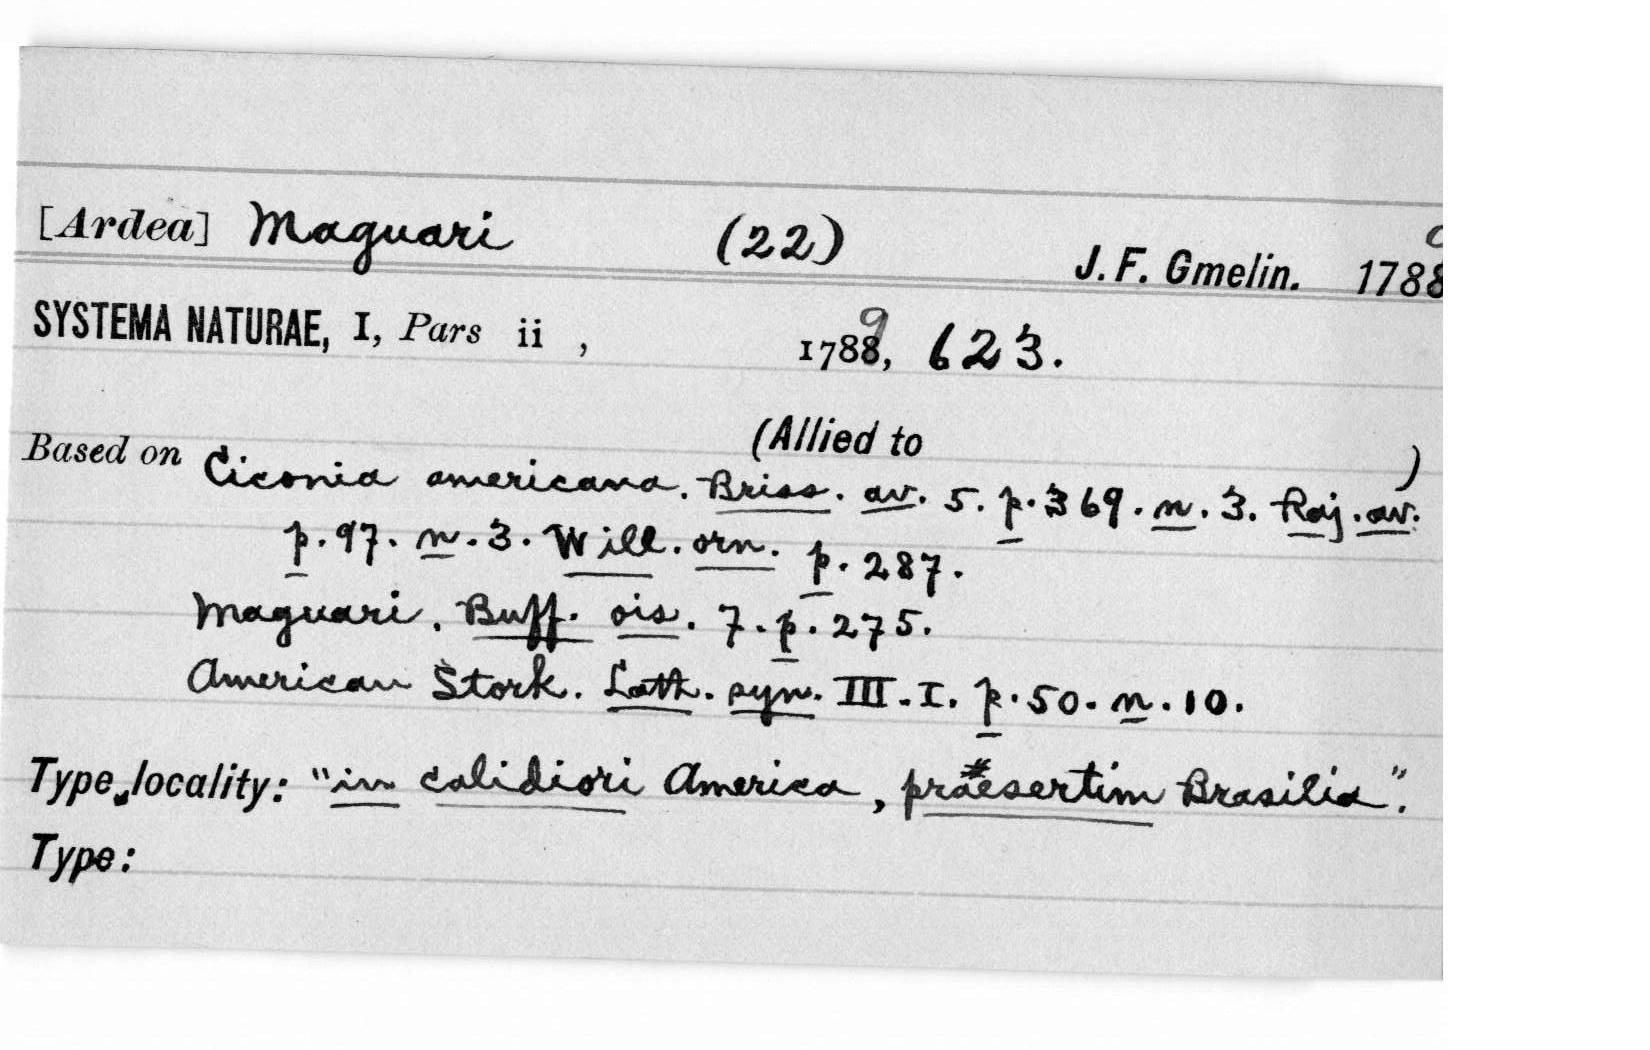 [Ardea] Maguari (22) J. F. Gmelin. 1788
SYSTEMA NATURAE, I, Pars ii , 17889, 623.
(Allied to )
Based on Ciconia americana. Briss. av. 5. p. 369. n. 3. Raj. av.
p. 97. n. 3. Will. orn. p. 287.
Maguari. Buff. ois. 7. p. 275.
American Stork. Lath. syn. III. I. p. 50. n. 10.
Type locality: "in calidiori America, praesertim Brasilia".
Type: